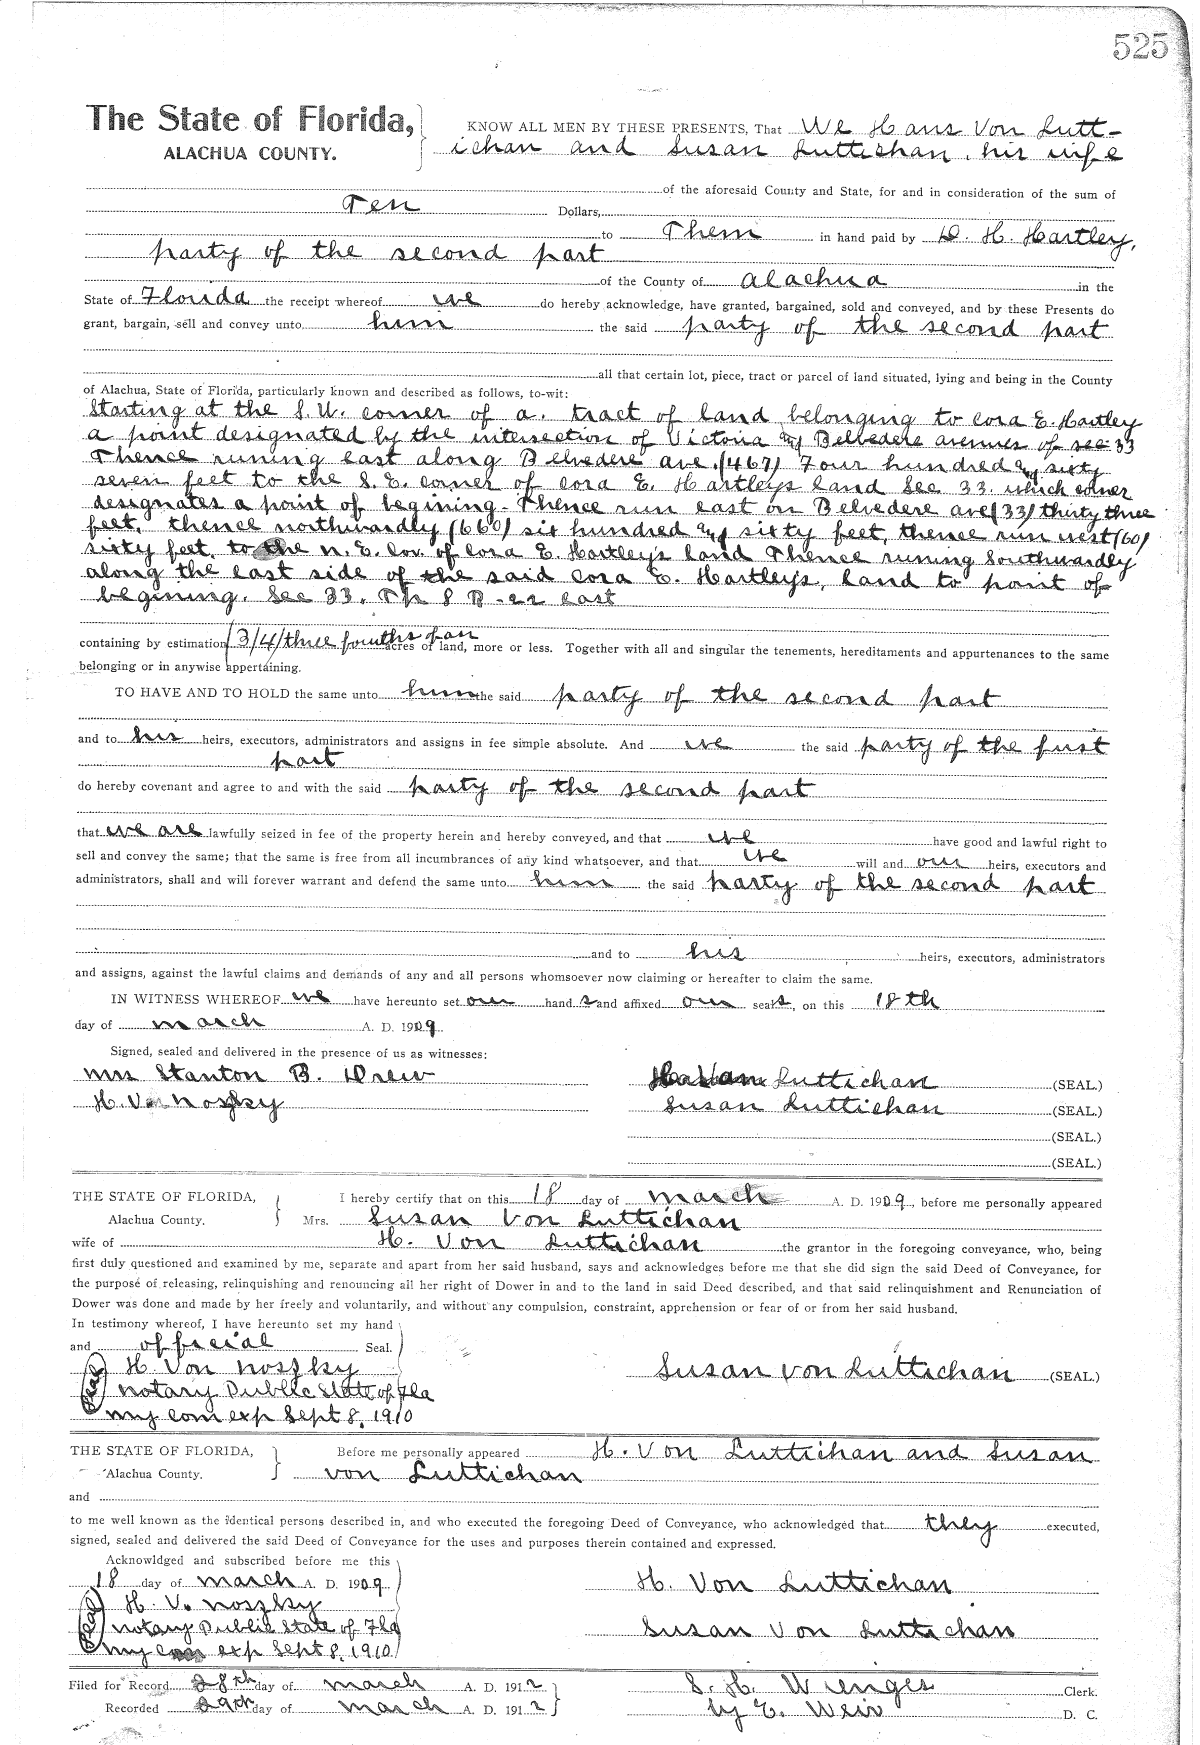 525
The State of Florida, KNOW ALL MEN BY THESE PRESENTS, That We Hans Von Lutt-
ALACHUA COUNTY. ichan and Susan Luttichan, his wife
of the aforesaid County and State, for and in consideration of the sum of
Ten Dollars,
to Them in hand paid by D. H. Hartley,
party of the second part
of the County of Alachua in the
State of Florida the receipt whereof we do hereby acknowledge, have granted, bargained, sold and conveyed, and by these Presents do
grant, bargain, sell and convey unto him the said party of the second part
all that certain lot, piece, tract or parcel of land situated, lying and being in the County
of Alachua, State of Florida, particularly known and described as follows, to-wit:
Starting at the S.W. corner of a. tract of land belonging to Cora E. Hartley
a point designated by the intersection of Victoria and Belvedere avenues of sec 33
Thence runing east along Belvedere ave. (467) Four hundred and sixty
seven feet to the S. E. corner of Cora E. Hartleys land Sec 33. which corner
designates a point of begining. Thence run east on Belvedere ave (33) thirty three
feet, thence northwardly (660) six hundred and sixty feet, thence run west (60)
sixty feet, to the N. E. Cor. of Cora E. Hartley's land Thence runing Southwardly
along the east side of the said Cora E. Hartleys, land to point of
begining. Sec 33. Tp 8 R - 22 east
containing by estimation (3/4) three fourths of an acres of land, more or less. Together with all and singular the tenements, hereditaments and appurtenances to the same
belonging or in anywise appertaining.
TO HAVE AND TO HOLD the same unto him the said party of the second part
and to his heirs, executors, administrators and assigns in fee simple absolute. And we the said party of the first
part
do hereby covenant and agree to and with the said party of the second part
that we are lawfully seized in fee of the property herein and hereby conveyed, and that we have good and lawful right to
sell and convey the same; that the same is free from all incumbrances of any kind whatsoever, and that we will and our heirs, executors and
administrators, shall and will forever warrant and defend the same unto him the said party of the second part
and to his heirs, executors, administrators
and assigns, against the lawful claims and demands of any and all persons whomsoever now claiming or hereafter to claim the same.
IN WITNESS WHEREOF we have hereunto set our hand s and affixed our seals, on this 18th
day of march A. D. 1909.
Signed, sealed and delivered in the presence of us as witnesses:
Mrs Stanton B. Drew Luttichan (SEAL.)
H. V. Noszky Susan Luttichan (SEAL.)
(SEAL.)
(SEAL.)
THE STATE OF FLORIDA, I hereby certify that on this 18 day of march A. D. 1909, before me personally appeared
Alachua County. Mrs. Susan Von Luttichan
wife of H. Von Luttichan the grantor in the foregoing conveyance, who, being
first duly questioned and examined by me, separate and apart from her said husband, says and acknowledges before me that she did sign the said Deed of Conveyance, for
the purpose of releasing, relinquishing and renouncing all her right of Dower in and to the land in said Deed described, and that said relinquishment and Renunciation of
Dower was done and made by her freely and voluntarily, and without any compulsion, constraint, apprehension or fear of or from her said husband.
In testimony whereof, I have hereunto set my hand
and official Seal.
H. Von Noszky Susan von Luttichan (SEAL.)
Notary Public State of Fla
my com exp Sept 8, 1910
THE STATE OF FLORIDA, Before me personally appeared H. Von Luttichan and Susan
Alachua County. von Luttichan
and
to me well known as the identical persons described in, and who executed the foregoing Deed of Conveyance, who acknowledged that they executed,
signed, sealed and delivered the said Deed of Conveyance for the uses and purposes therein contained and expressed.
Acknowldged and subscribed before me this
18 day of march A. D. 1909 H. Von Luttichan
H. V. Noszky
Notary Public State of Fla Susan Von Luttichan
my com exp Sept 8, 1910
Filed for Record 28th day of march A. D. 1912 S. H. Wienges Clerk.
Recorded 29th day of march A. D. 1912 by E. Weir D. C.